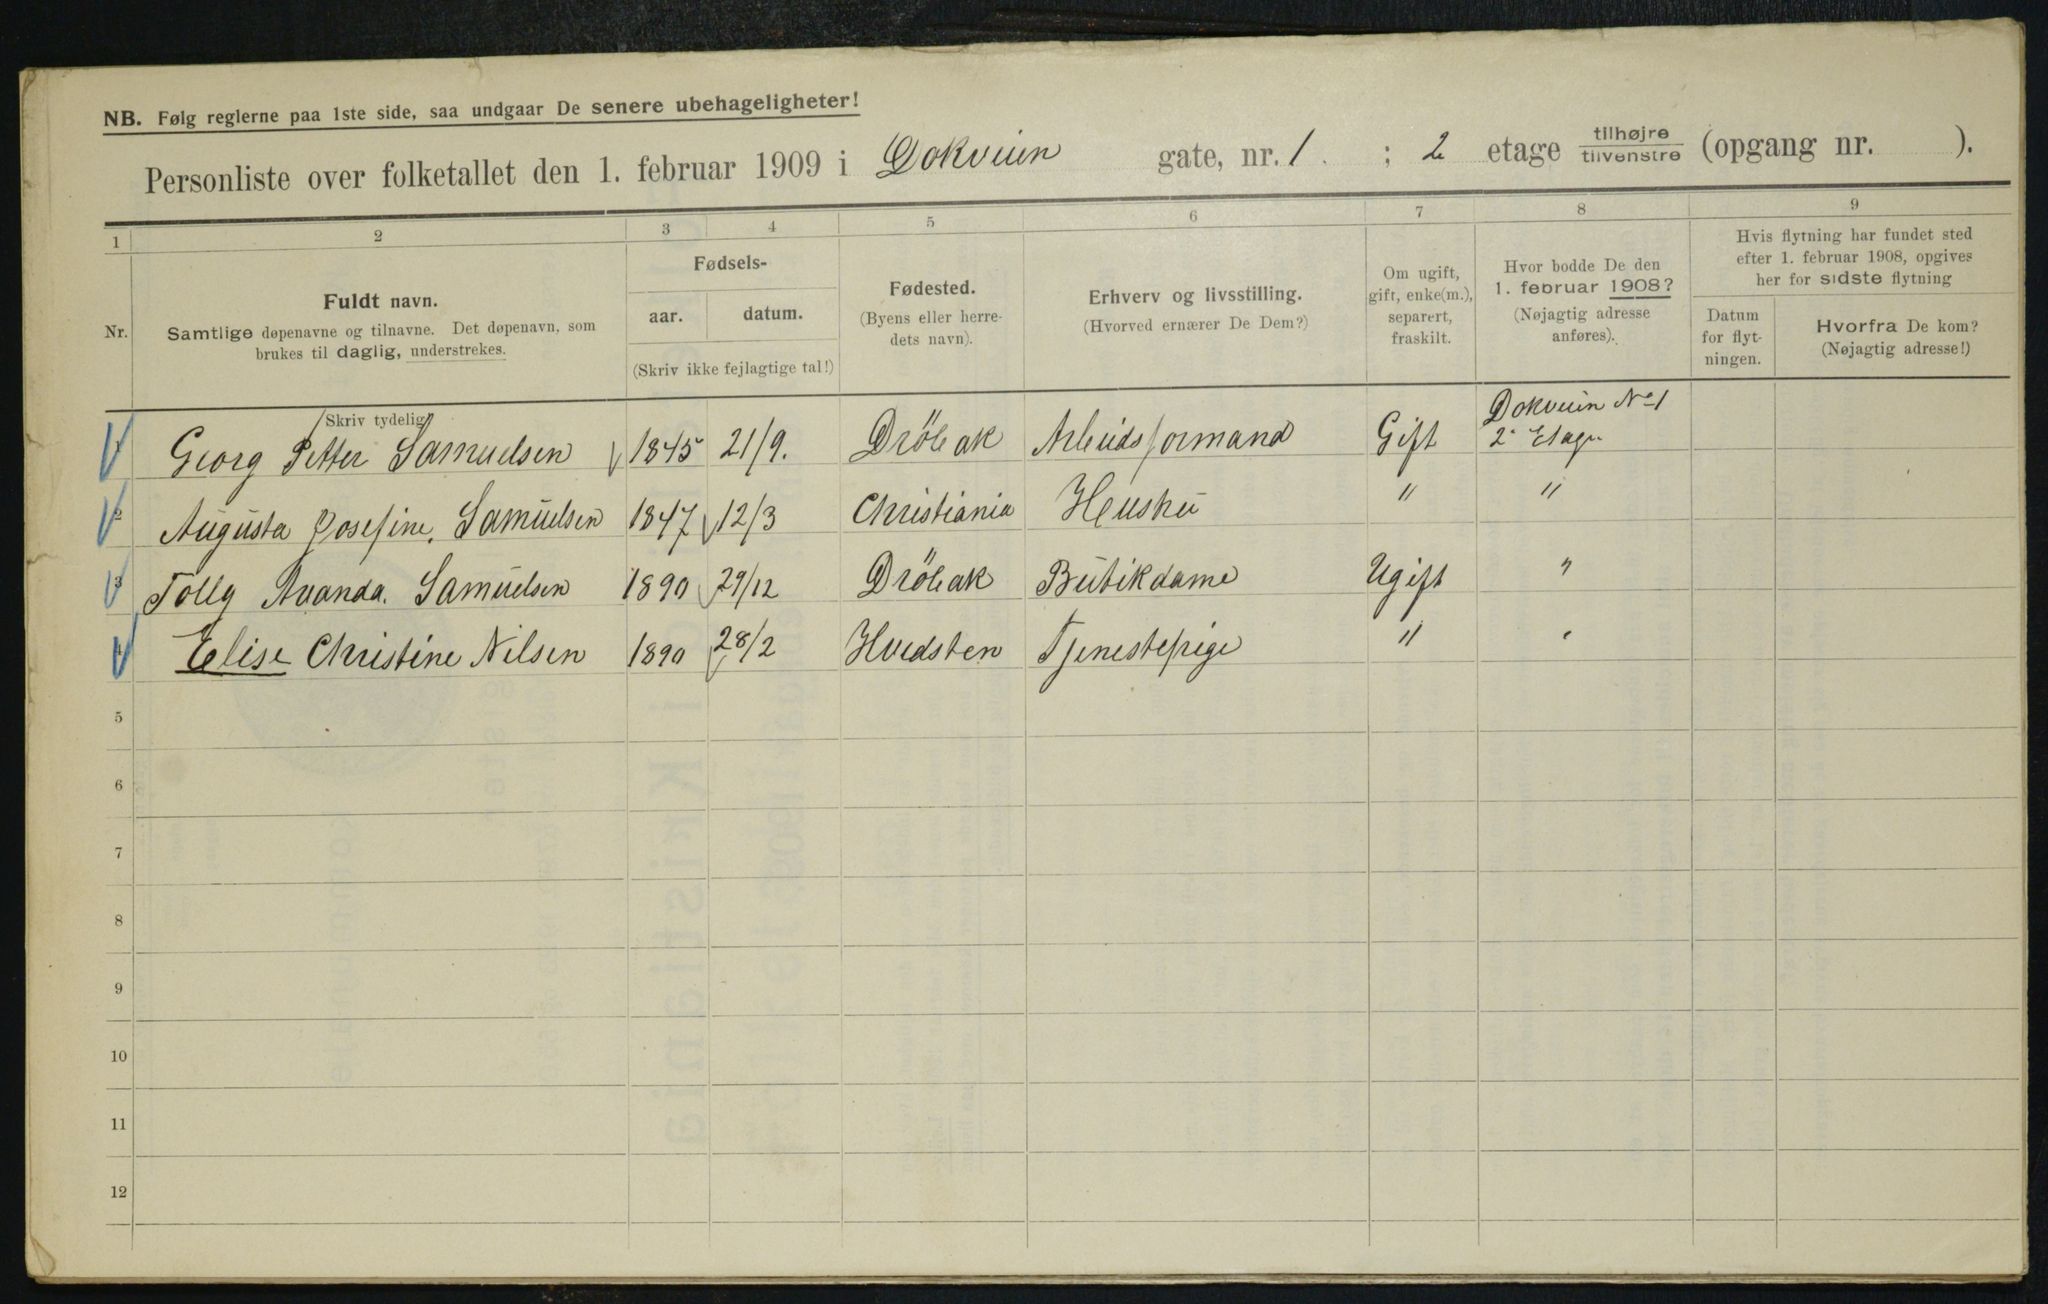 NB. Følg reglerne paa 1ste side, saa undgaar De senere ubehageligheter!
Personliste over folketallet den 1. februar 1909 i Dokveien gate, nr. 1. ; 2 etage tilhøjre/tilvenstre (opgang nr. ).
1 2 3 4 5 6 7 8 9
Nr.
Fuldt navn.
Samtlige døpenavne og tilnavne. Det døpenavn, som
brukes til daglig, understrekes.
Fødsels-
aar. datum.
(Skriv ikke fejlagtige tal!)
Fødested.
(Byens eller herre-
dets navn).
Erhverv og livsstilling.
(Hvorved ernærer De Dem?)
Om ugift,
gift, enke(m.),
separert,
fraskilt.
Hvor bodde De den
1. februar 1908?
(Nøjagtig adresse
anføres).
Hvis flytning har fundet sted
efter 1. februar 1908, opgives
her for sidste flytning
Datum
for flyt-
ningen.
Hvorfra De kom?
(Nøjagtig adresse!)
Skriv tydelig
1 Georg Petter Samuelsen 1845 21/9. Dröbak Arbeidsformand Gift Dokveien No 1
2. Etage
2 Augusta Josefine. Samuelsen 1847 12/3 Christiania Hustru " "
3 Tolly Avanda. Samuelsen 1890 29/12 Dröbak Butikdame Ugift "
4 Elise Christine Nilsen 1890 28/2 Hvidsten Tjenestepige " "
5
6
7
8
9
10
11
12